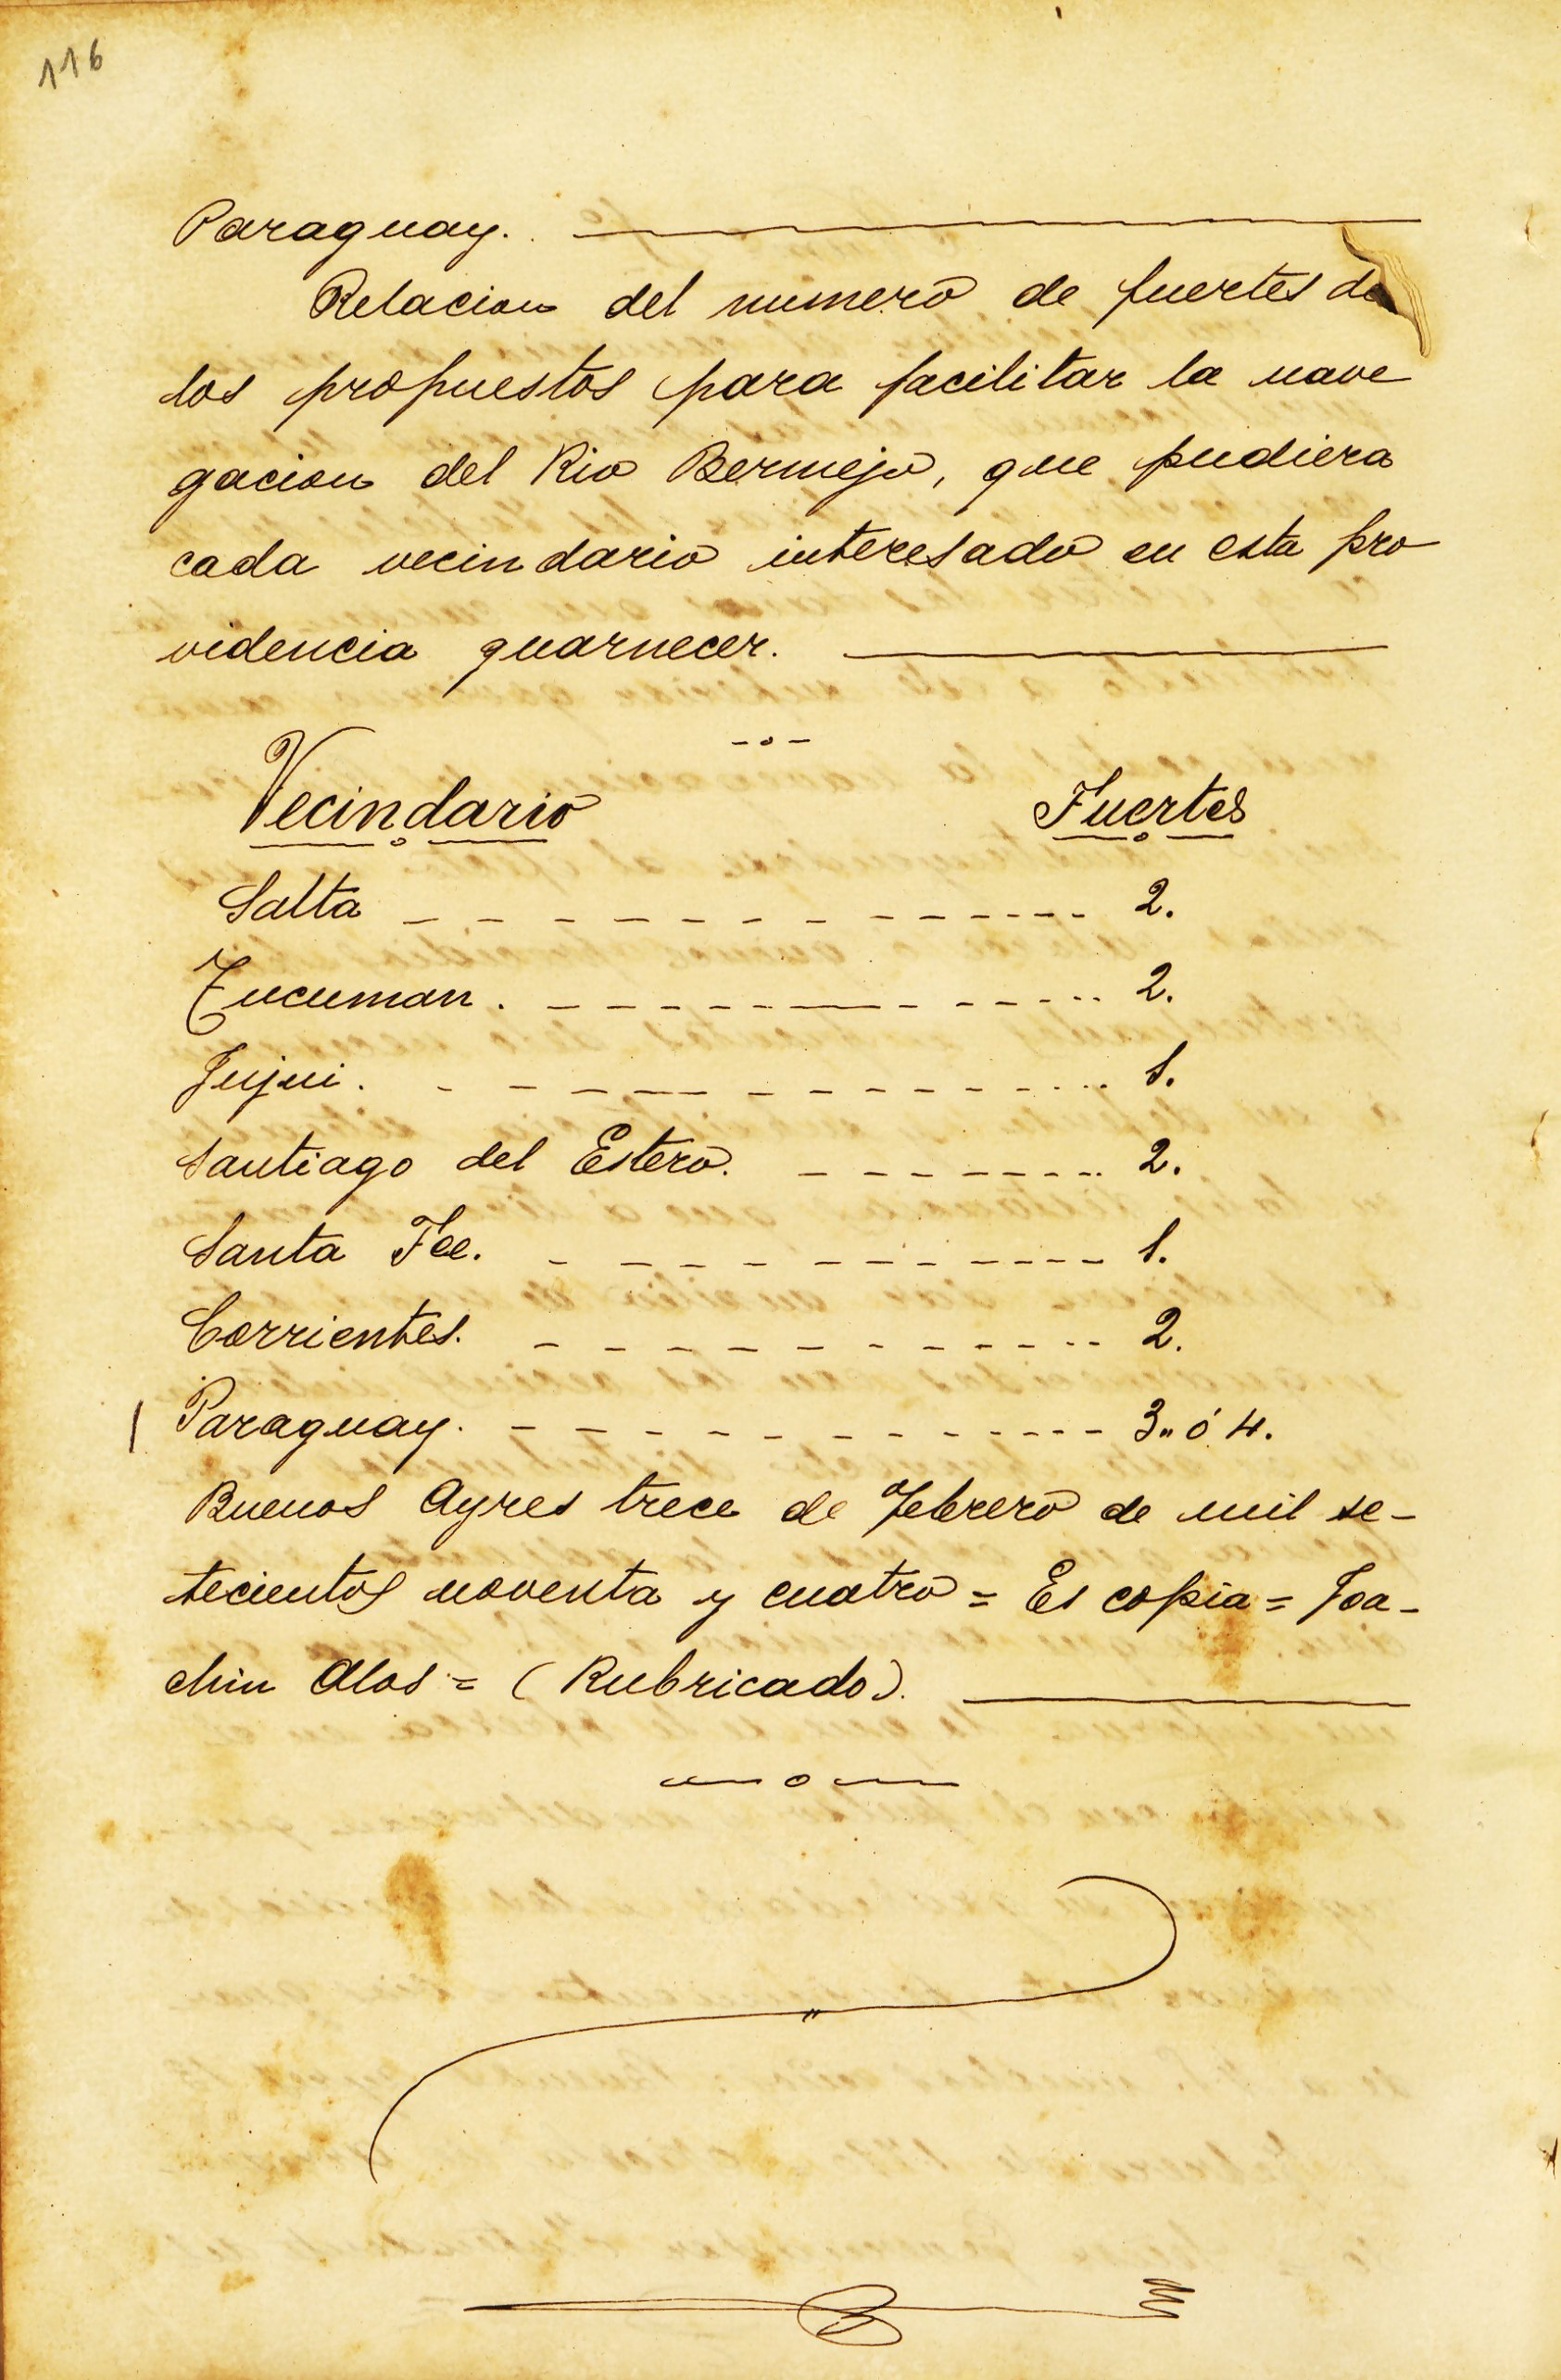 116
Paraguay.
Relacion del numero de fuertes de
los propuestos para facilitar la nave
gacion del Rio Bermejo, que pudiera
cada vecindario interesado en esta pro
videncia guarnecer.
Vecindario Fuertes
Salta 2.
Tucuman. 2.
Jujui. 1.
Santiago del Estero. 2.
Santa Fee. 1.
Corrientes. 2.
Paraguay. 3" ó 4.
Buenos Ayres trece de Febrero de mil se-
tecientos noventa y cuatro = Es copia = Joa-
chin Alos = (Rubricado).